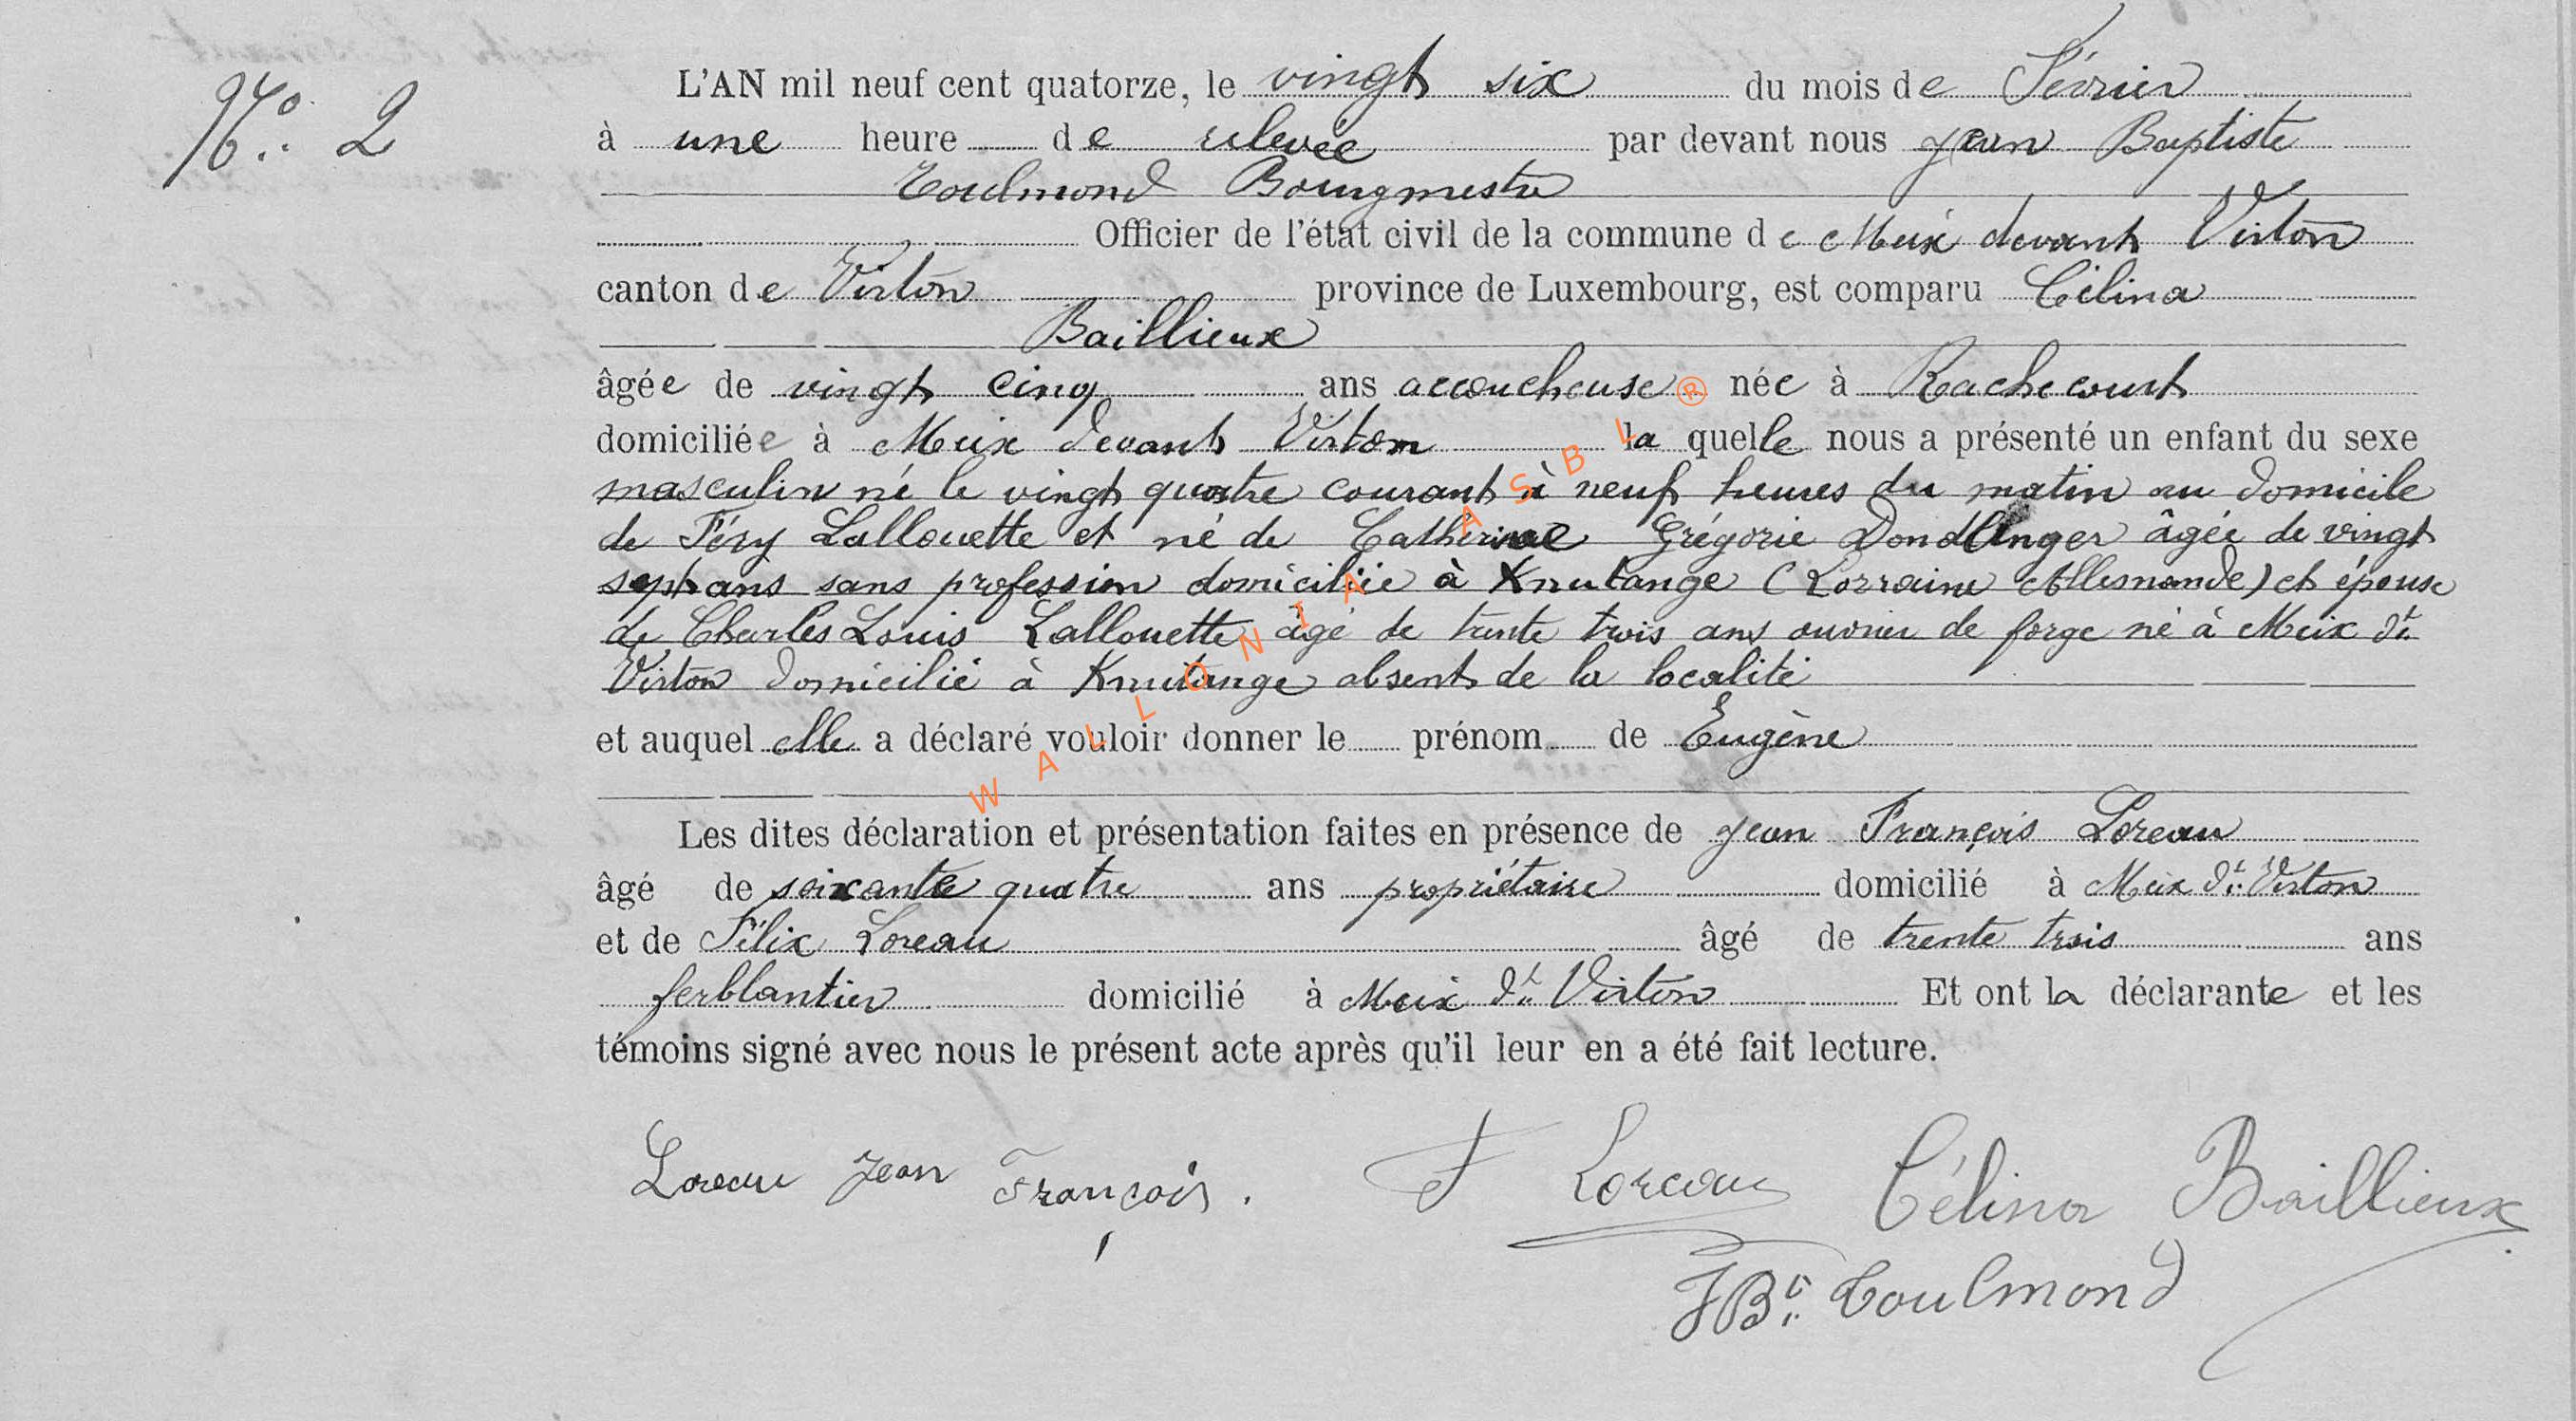 N° 2
L'AN mil neuf cent quatorze, le vingt six du mois de Février
à une heure de relevée par devant nous Jean Baptiste
Toulmond Bourgmestre
Officier de l'état civil de la commune de Meix devant Virton
canton de Virton province de Luxembourg, est comparu Célina
Baillieux
âgée de vingt cinq ans accoucheuse née à Rachecourt
domiciliée à Meix devant Virton laquelle nous a présenté un enfant du sexe
masculin né le vingt quatre courant à neuf heures du matin au domicile
de Féry Lallouette et né de Catherine Grégorie Dondlinger âgée de vingt
sept ans sans profession domiciliée à Knutange (Lorraine Allemande) et épouse
de Charles Louis Lallouette âgé de trente trois ans ouvrier de forge né à Meix dt
Virton domicilié à Knutange absent de la localité
et auquel elle a déclaré vouloir donner le prénom de Eugène
Les dites déclaration et présentation faites en présence de Jean François Loreau
âgé de soixante quatre ans propriétaire domicilié à Meix dt Virton
et de Félix Loreau âgé de trente trois ans
ferblantier domicilié à Meix dt Virton Et ont la déclarante et les
témoins signé avec nous le présent acte après qu'il leur en a été fait lecture.
Loreau Jean François. F Loreau Célina Baillieux
JBte Toulmond
WALLONIA ASBL ®